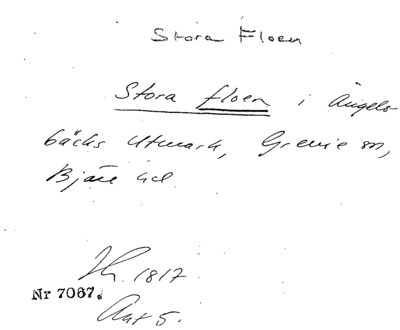 Stora Floen
Stora floen i Ängels-
bäcks Utmark, Grevie sn,
Bjäre hd.
1817
Nr 7067.
Akt 5.